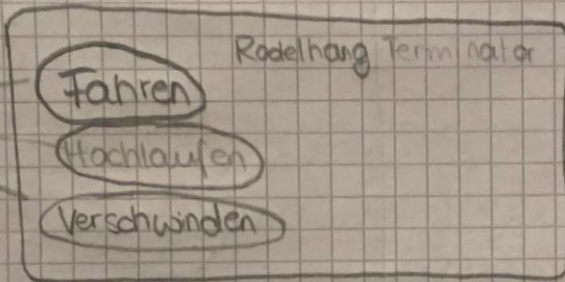 Rodelhang Terminator
Fahren
Hochlaufen
Verschwinden